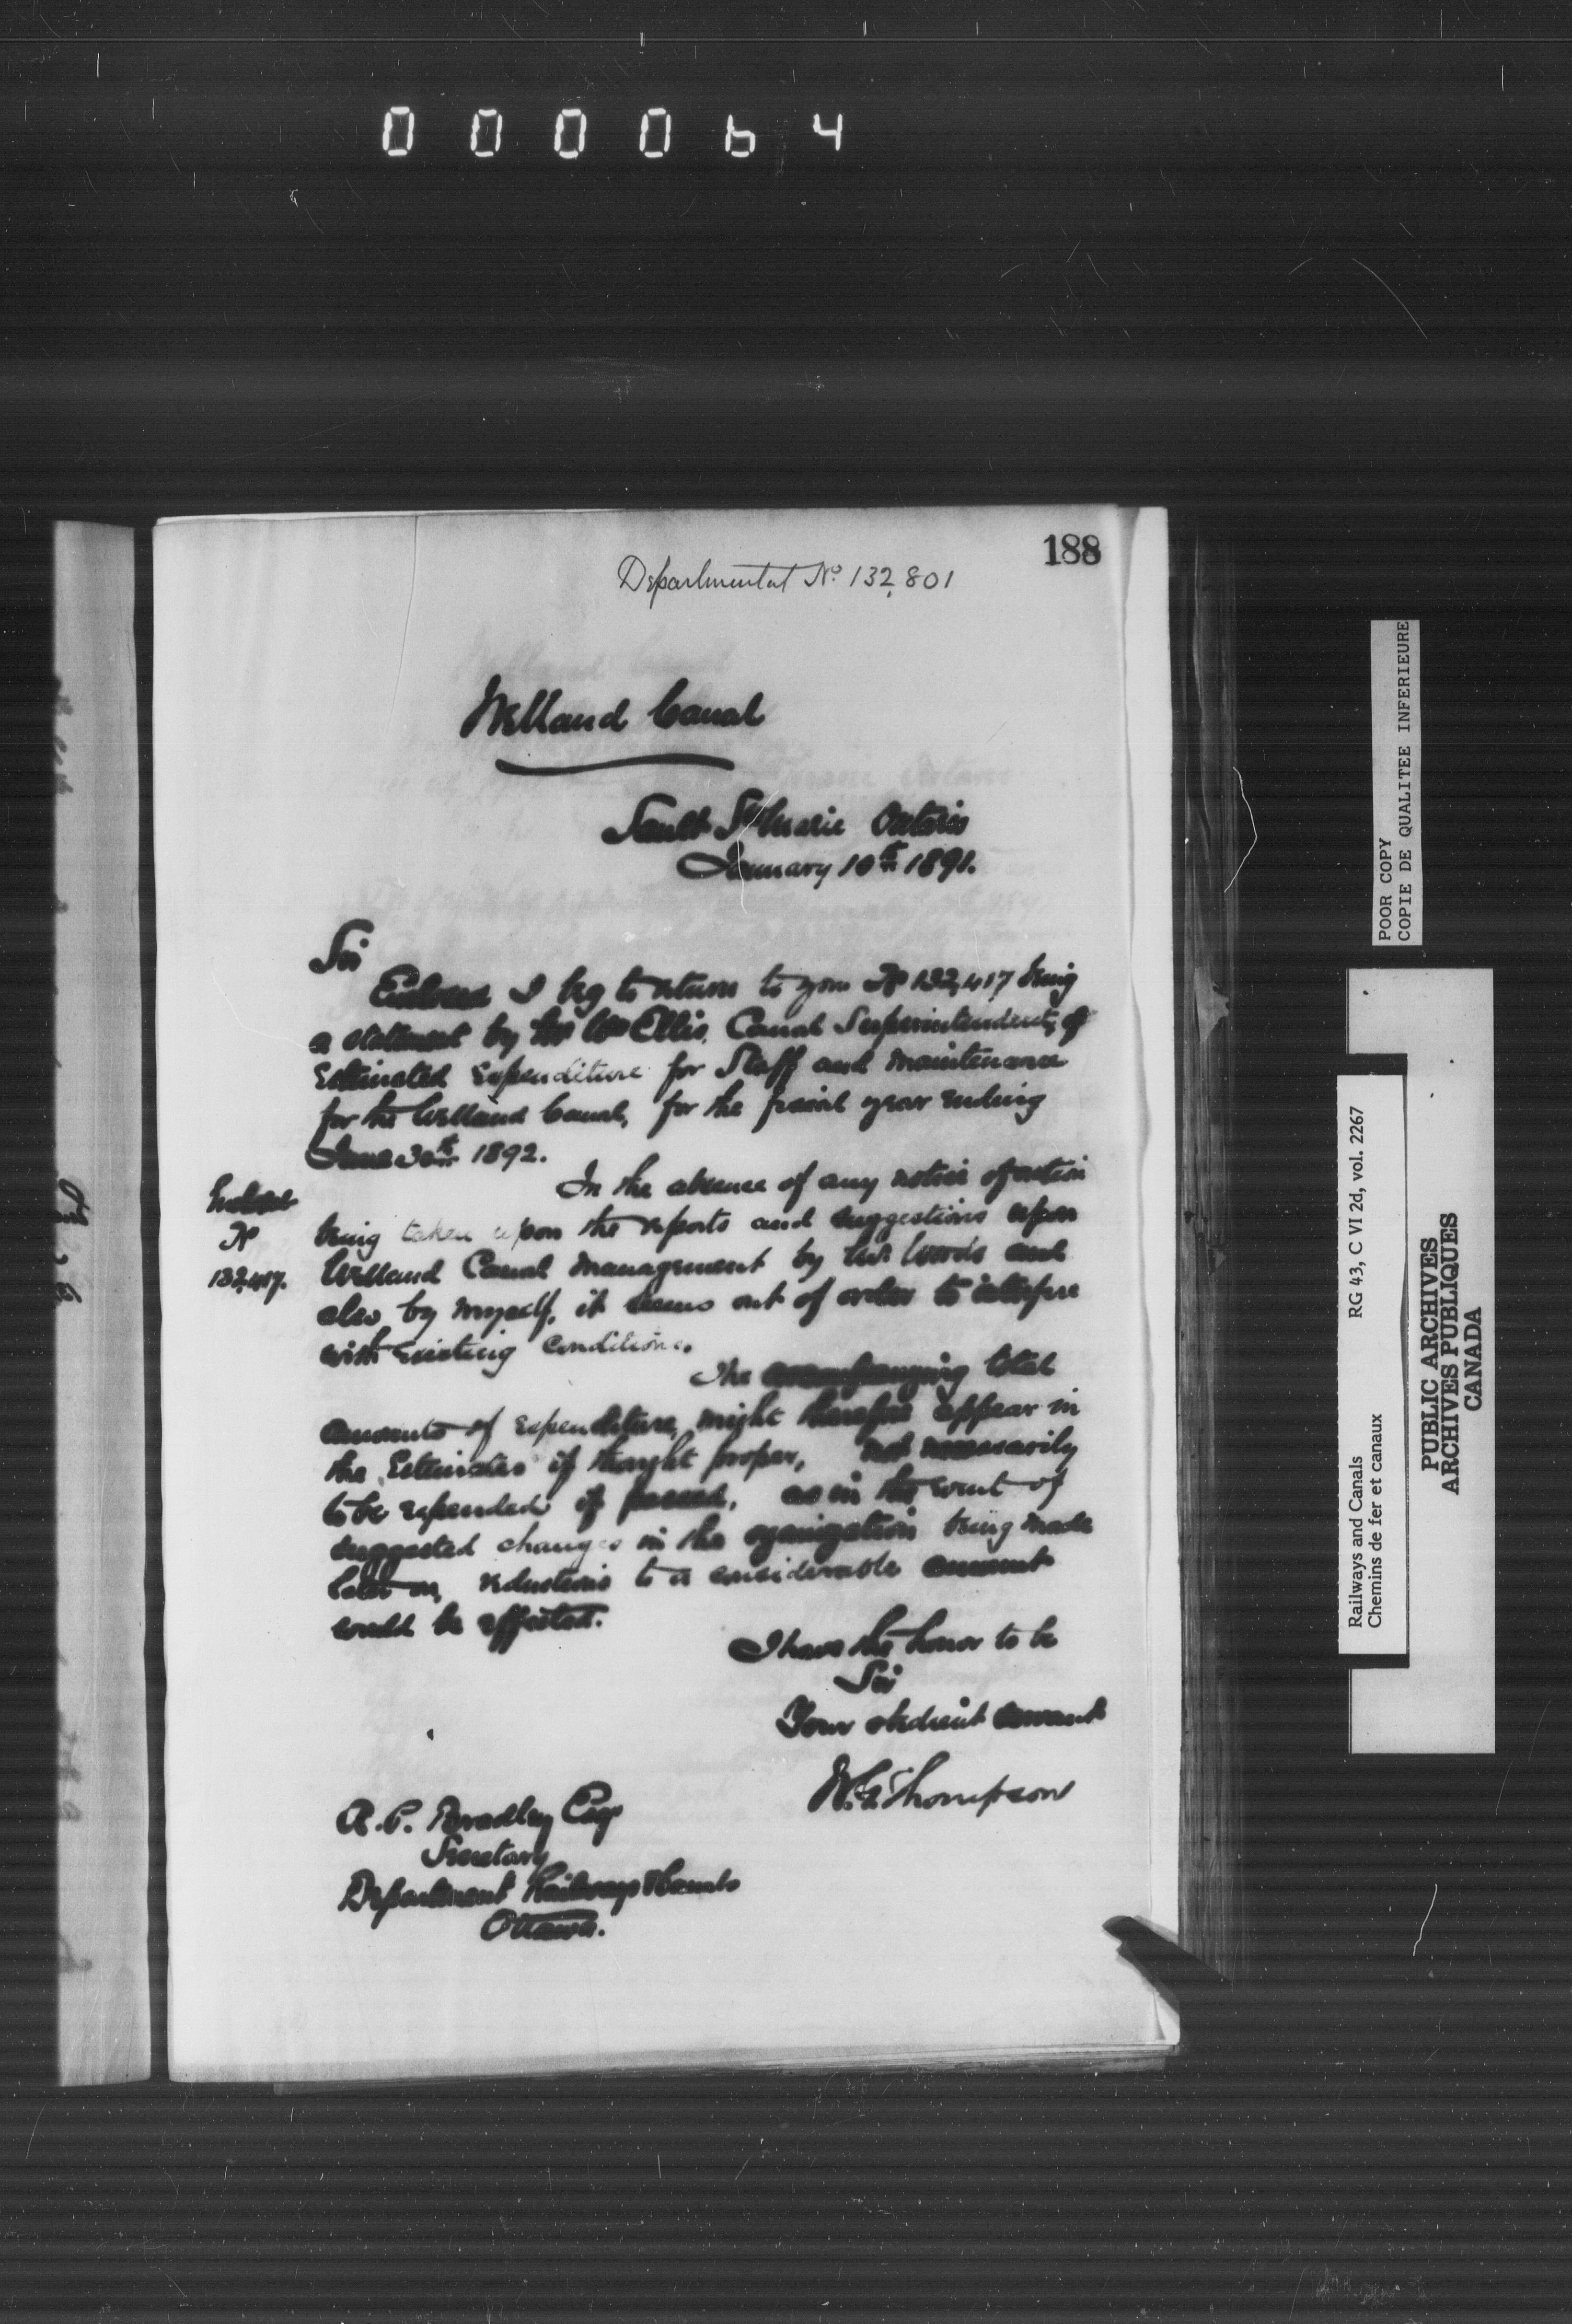 000064
188
Departmental No. 132,801
Welland Canal
Sault Ste Marie Ontario
January 10th 1891.
Sir
Enclosed I beg to return to you No 132,417 being
a statement by Mr Wm Ellis, Canal Superintendent, of
Estimated Expenditure for Staff and Maintenance
for the Welland Canal, for the fiscal year ending
June 30th 1892.
In the absence of any notice of action
being taken upon the reports and suggestions upon
Welland Canal Management by Mr. Wood and
also by myself, it seems out of order to interfere
with existing conditions.
Enclosed
No
132,417.
The accompanying total
amounts of expenditure, might therefore appear in
the Estimates if thought proper, not necessarily
to be expended if passed, as in the event of
suggested changes in the organization being made
later on, reductions to a considerable amount
could be effected.
I have the honor to be
Sir
Your obedient servant
W.G. Thompson
A.P. Bradley Esq
Secretary
Department Railways & Canals
Ottawa.
POOR COPY
COPIE DE QUALITEE INFERIEURE
Railways and Canals RG 43, C VI 2d, vol. 2267
Chemins de fer et canaux
PUBLIC ARCHIVES
ARCHIVES PUBLIQUES
CANADA